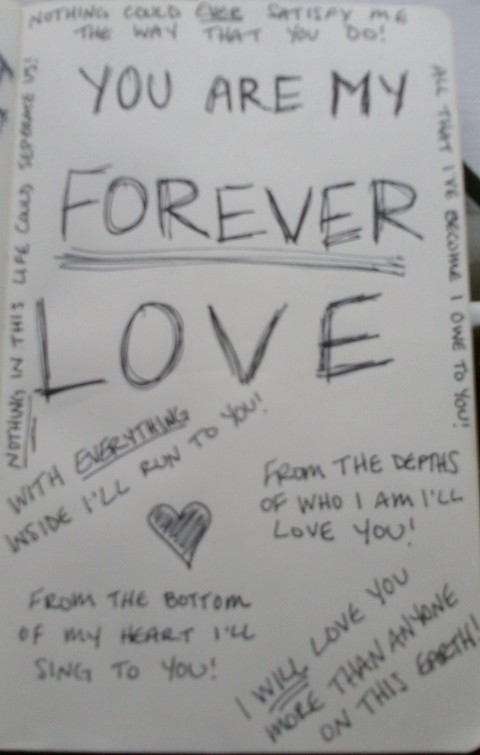 NOTHING COULD EVER SATISFY ME
THE WAY THAT YOU DO!
YOU ARE MY
FOREVER
LOVE
NOTHING IN THIS LIFE COULD SEPERATE US!
ALL THAT I'VE BECOME I OWE TO YOU!
WITH EVERYTHING
INSIDE I'LL RUN TO YOU!
FROM THE DEPTHS
OF WHO I AM I'LL
LOVE YOU!
FROM THE BOTTOM
OF MY HEART I'LL
SING TO YOU!
I WILL LOVE YOU
MORE THAN ANYONE
ON THIS EARTH!